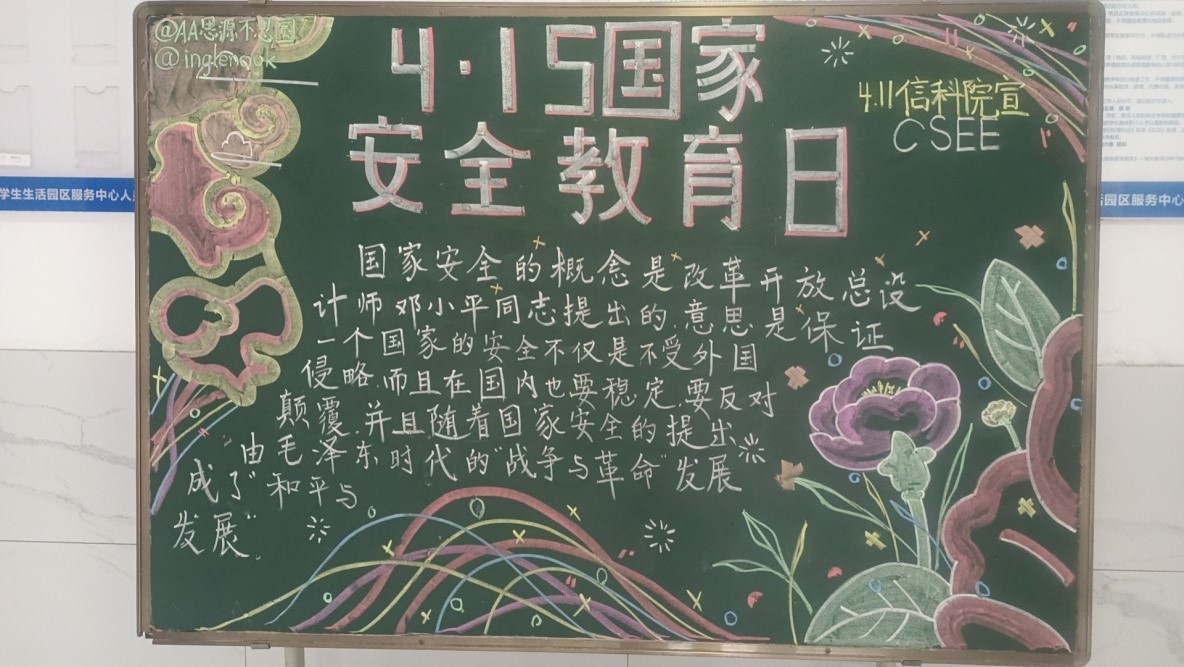 @AA思源不思圆
@inglenook
4·15国家
安全教育日
4.11信科院宣
CSEE
国家安全的概念是改革开放总设
计师邓小平同志提出的.意思是保证
一个国家的安全不仅是不受外国
侵略.而且在国内也要稳定.要反对
颠覆.并且随着国家安全的提出
由毛泽东时代的“战争与革命”发展
成了“和平与
发展”.
学生生活园区服务中心人
园区服务中心